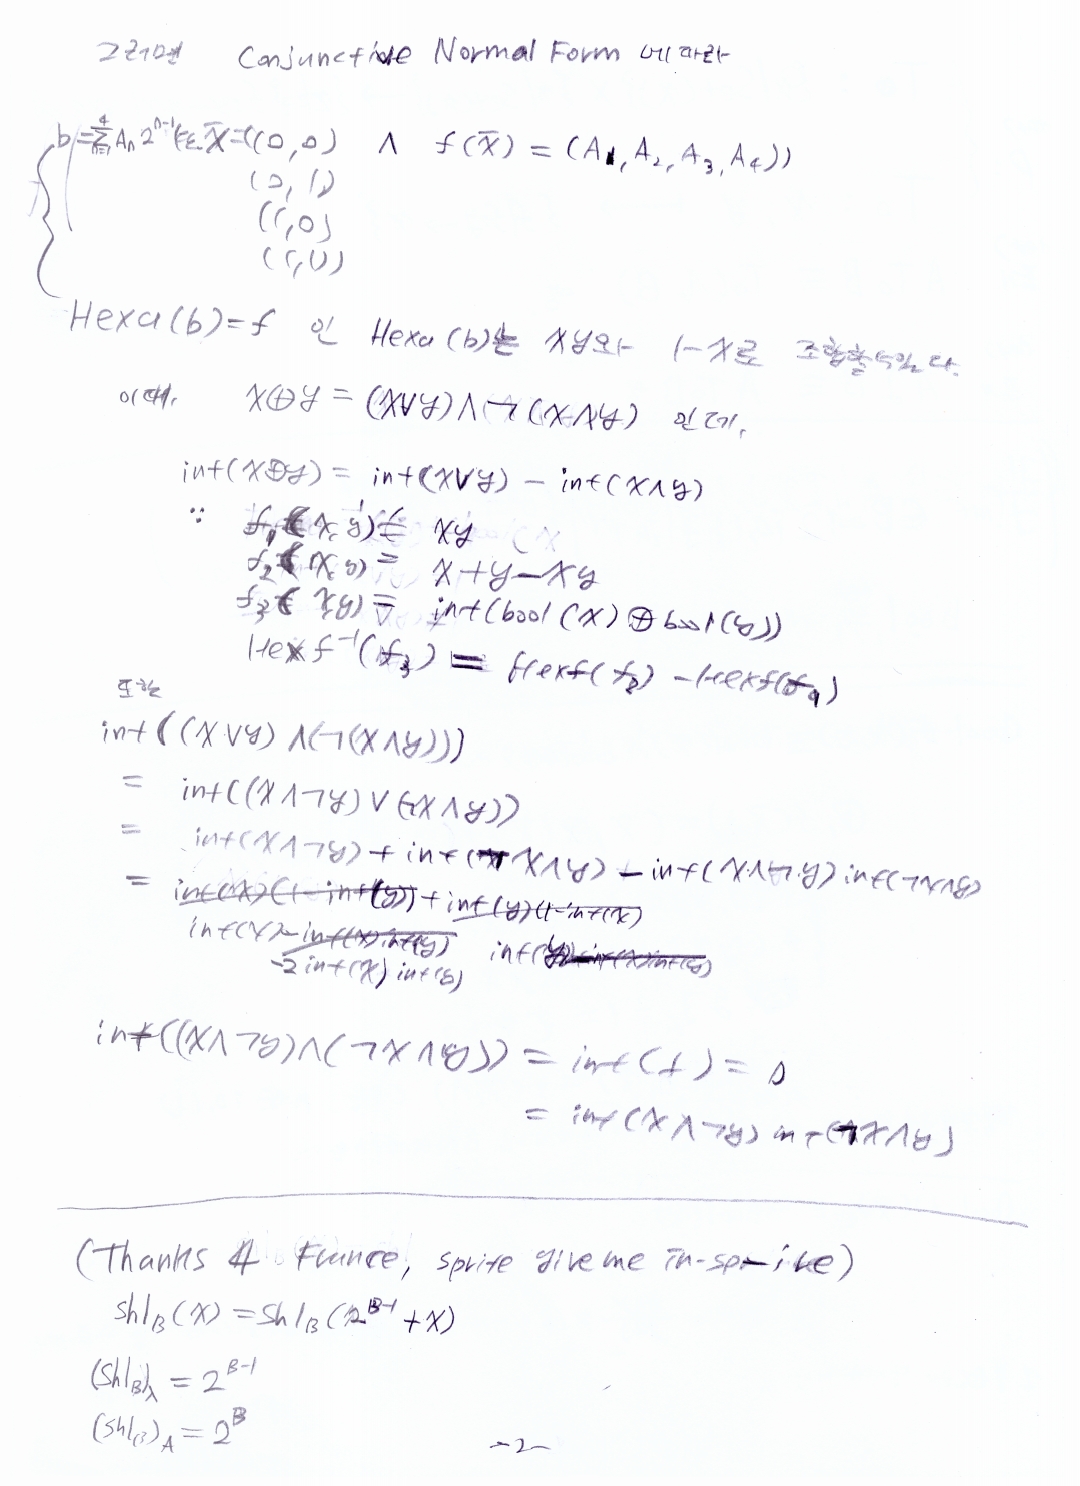 그러면 Conjunctive Normal Form 에 따라
b=∑_{n=1}^{4} A_n 2^{n-1} X̄=((0,0) ∧ f(X̄) = (A_1, A_2, A_3, A_4))
(0, 1)
(1,0)
(1,1)
Hexa(b)=f 인 Hexa(b)는 xy와 1-x로 조합할 수 있다.
이때, x⊕y = (x∨y)∧¬(x∧y) 인데,
int(x⊕y) = int(x∨y) - int(x∧y)
∵ f_1(x,y) = xy
f_2(x,y) = x+y-xy
f_3(x,y) = int(bool(x)⊕bool(y))
Hexf^{-1}(f_3) = Hexf(f_2) - Hexf(f_1)
또한
int((x∨y)∧(¬(x∧y)))
= int((x∧¬y)∨(¬x∧y))
= int(x∧¬y)+int(¬x∧y) - int(x∧¬y) int(¬x∧y)
= int(x)(1-int(y))+int(y)(1-int(x)
int(x)-int(x)int(y) int(y)-int(x)int(y)
-2 int(x) int(y)
int((x∧¬y)∧(¬x∧y)) = int(f) = 0
= int(x∧¬y) int(¬x∧y)
(Thanks 4 France, sprite give me in-sprite)
shl_B(x) = shl_B(2^{B-1}+x)
(shl_B)_λ = 2^{B-1}
(shl_B)_A = 2^B
-2-